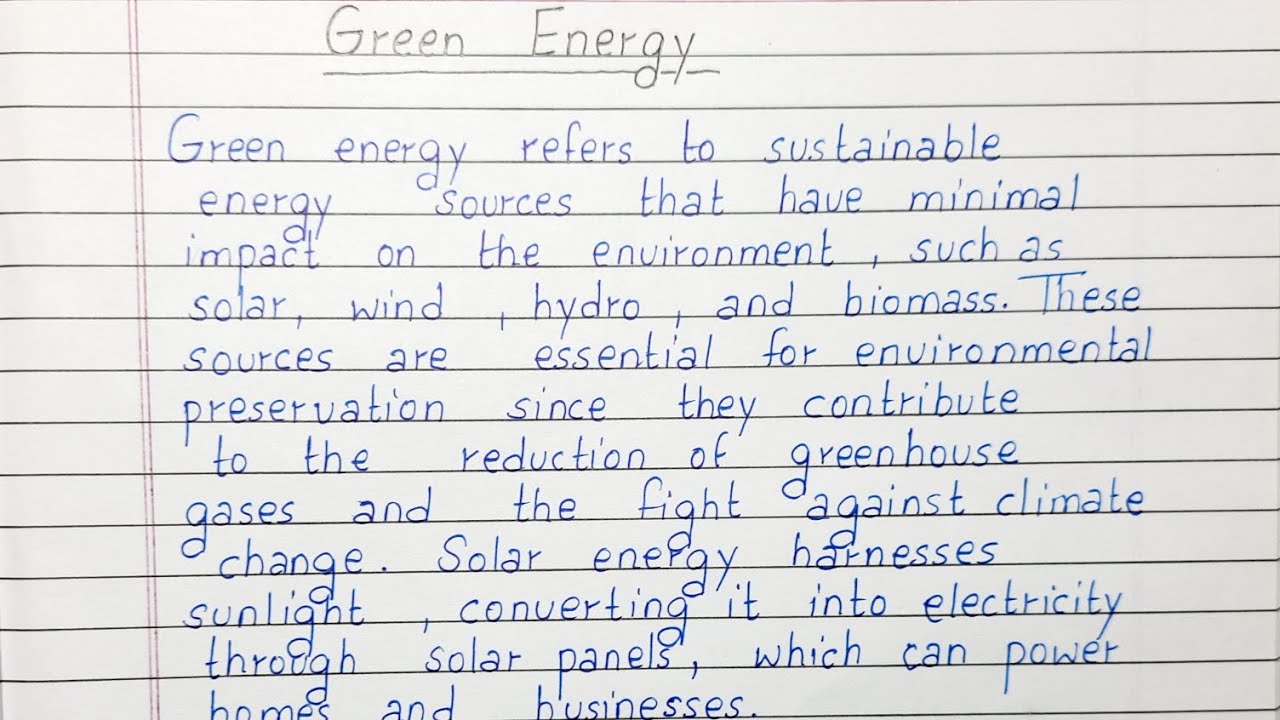 Green Energy
Green energy refers to sustainable
energy sources that have minimal
impact on the environment, such as
solar, wind, hydro, and biomass. These
sources are essential for environmental
preservation since they contribute
to the reduction of greenhouse
gases and the fight against climate
change. Solar energy harnesses
sunlight, converting it into electricity
through solar panels, which can power
homes and businesses.